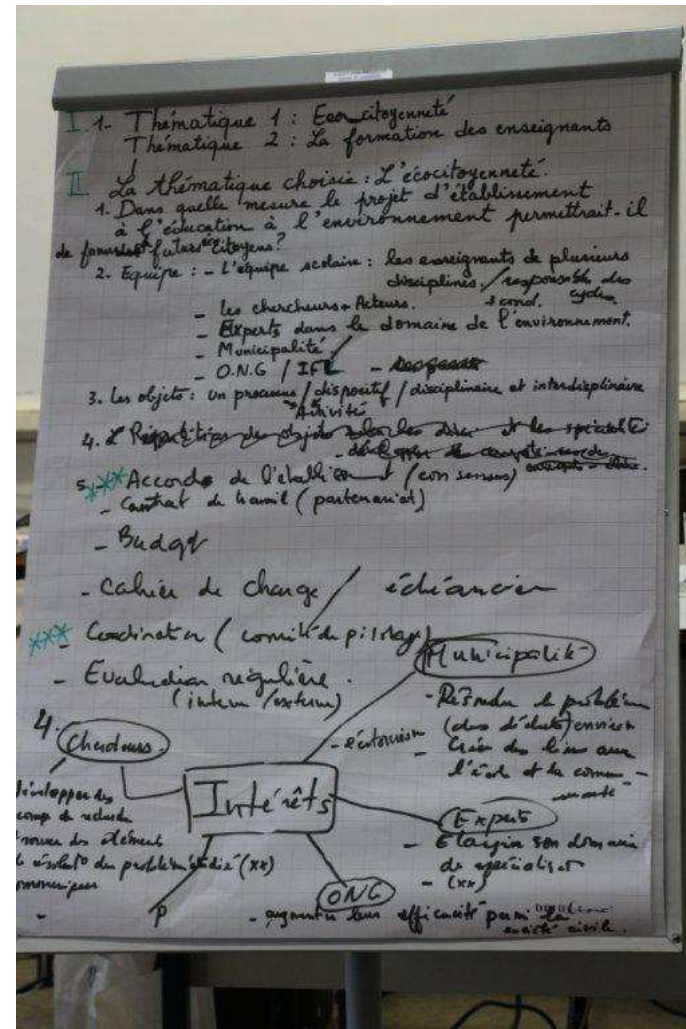 I. 1- Thématique 1 : Ecocitoyenneté
Thématique 2 : La formation des enseignants
II. La thématique choisie : L'écocitoyenneté.
1. Dans quelle mesure le projet d'établissement
à l'éducation à l'environnement permettrait-il
de futurs citoyens ?
2- Equipe : - L'équipe scolaire : les enseignants de plusieurs
disciplines. / responsable des
cycles
- Les chercheurs + Acteurs.
- Experts dans le domaine de l'environnement.
- Municipalité
- O.N.G / IFL
3. Les objets : un processus / dispositif / disciplinaire et interdisciplinaire
Activité
4.
5. *** Accords de l'établissement (consensus)
- Contrat de travail (partenariat)
- Budget
- Cahier de charge / échéancier
*** - Coordination (comité de pilotage)
- Evaluation régulière.
(interne / externe)
4.
Chercheurs.
développer des
Intérêts
Municipalité
- Résoudre le problème
(des déchets) environ
- Créer des liens avec
l'école et la commu-
nauté
Experts
- Elargir son domaine
de
- (xx)
ONG
- augmenter leur efficacité parmi la
société civile.
P